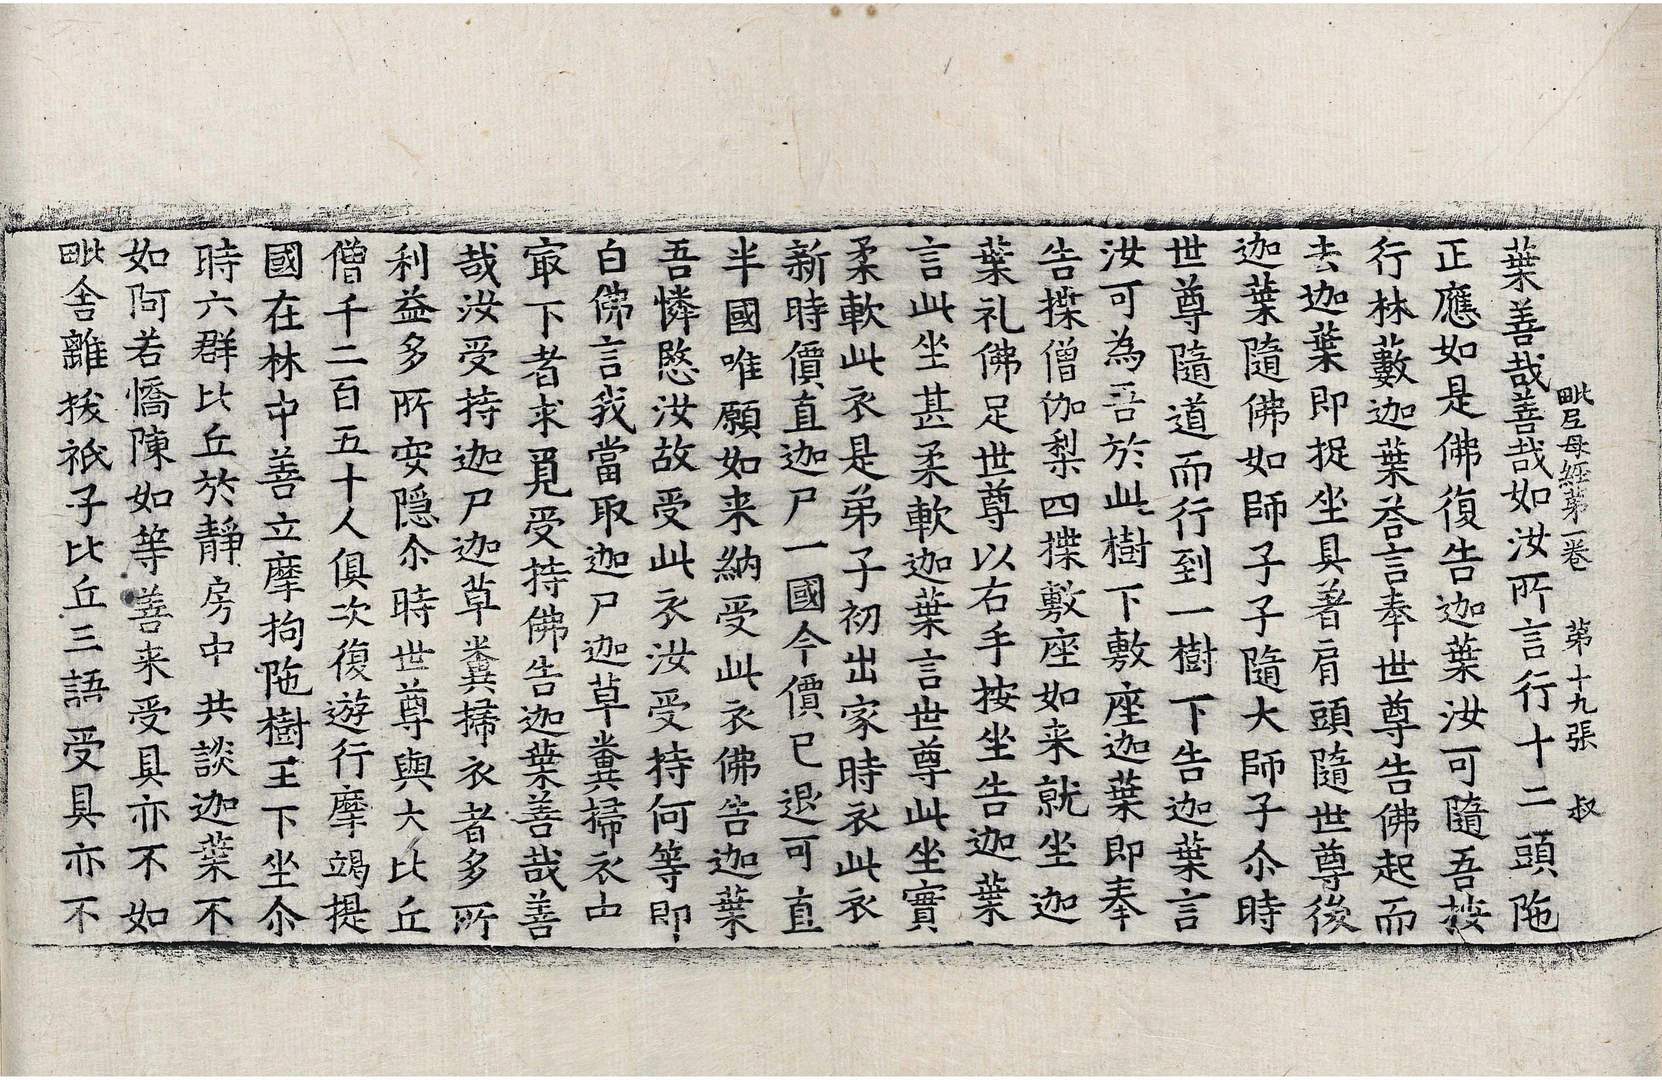 毗尼母經苐一卷 苐十九張 叔
葉善哉善哉如汝所言行十二頭陁
正應如是佛復告迦葉汝可隨吾按
行林藪迦葉荅言奉世尊告佛起而
去迦葉即捉坐具著肩頭隨世尊後
迦葉隨佛如師子子隨大師子尒時
世尊隨道而行到一樹下告迦葉言
汝可為吾於此樹下敷座迦葉即奉
告揲僧伽梨四揲敷座如来就坐迦
葉礼佛足世尊以右手按坐告迦葉
言此坐甚柔軟迦葉言世尊此坐實
柔軟此衣是弟子初出家時衣此衣
新時價直迦尸一國今價已退可直
半國唯願如来納受此衣佛告迦葉
吾憐愍汝故受此衣汝受持何等即
白佛言我當取迦尸迦草糞掃衣中
冣下者求覓受持佛告迦葉善哉善
哉汝受持迦尸迦草糞掃衣者多所
利益多所安隱尒時世尊與大比丘
僧千二百五十人俱次復遊行摩竭提
國在林中善立摩拘陁樹王下坐尒
時六群比丘於靜房中共談迦葉不
如阿若憍陳如等善来受具亦不如
毗舍離拔祇子比丘三語受具亦不